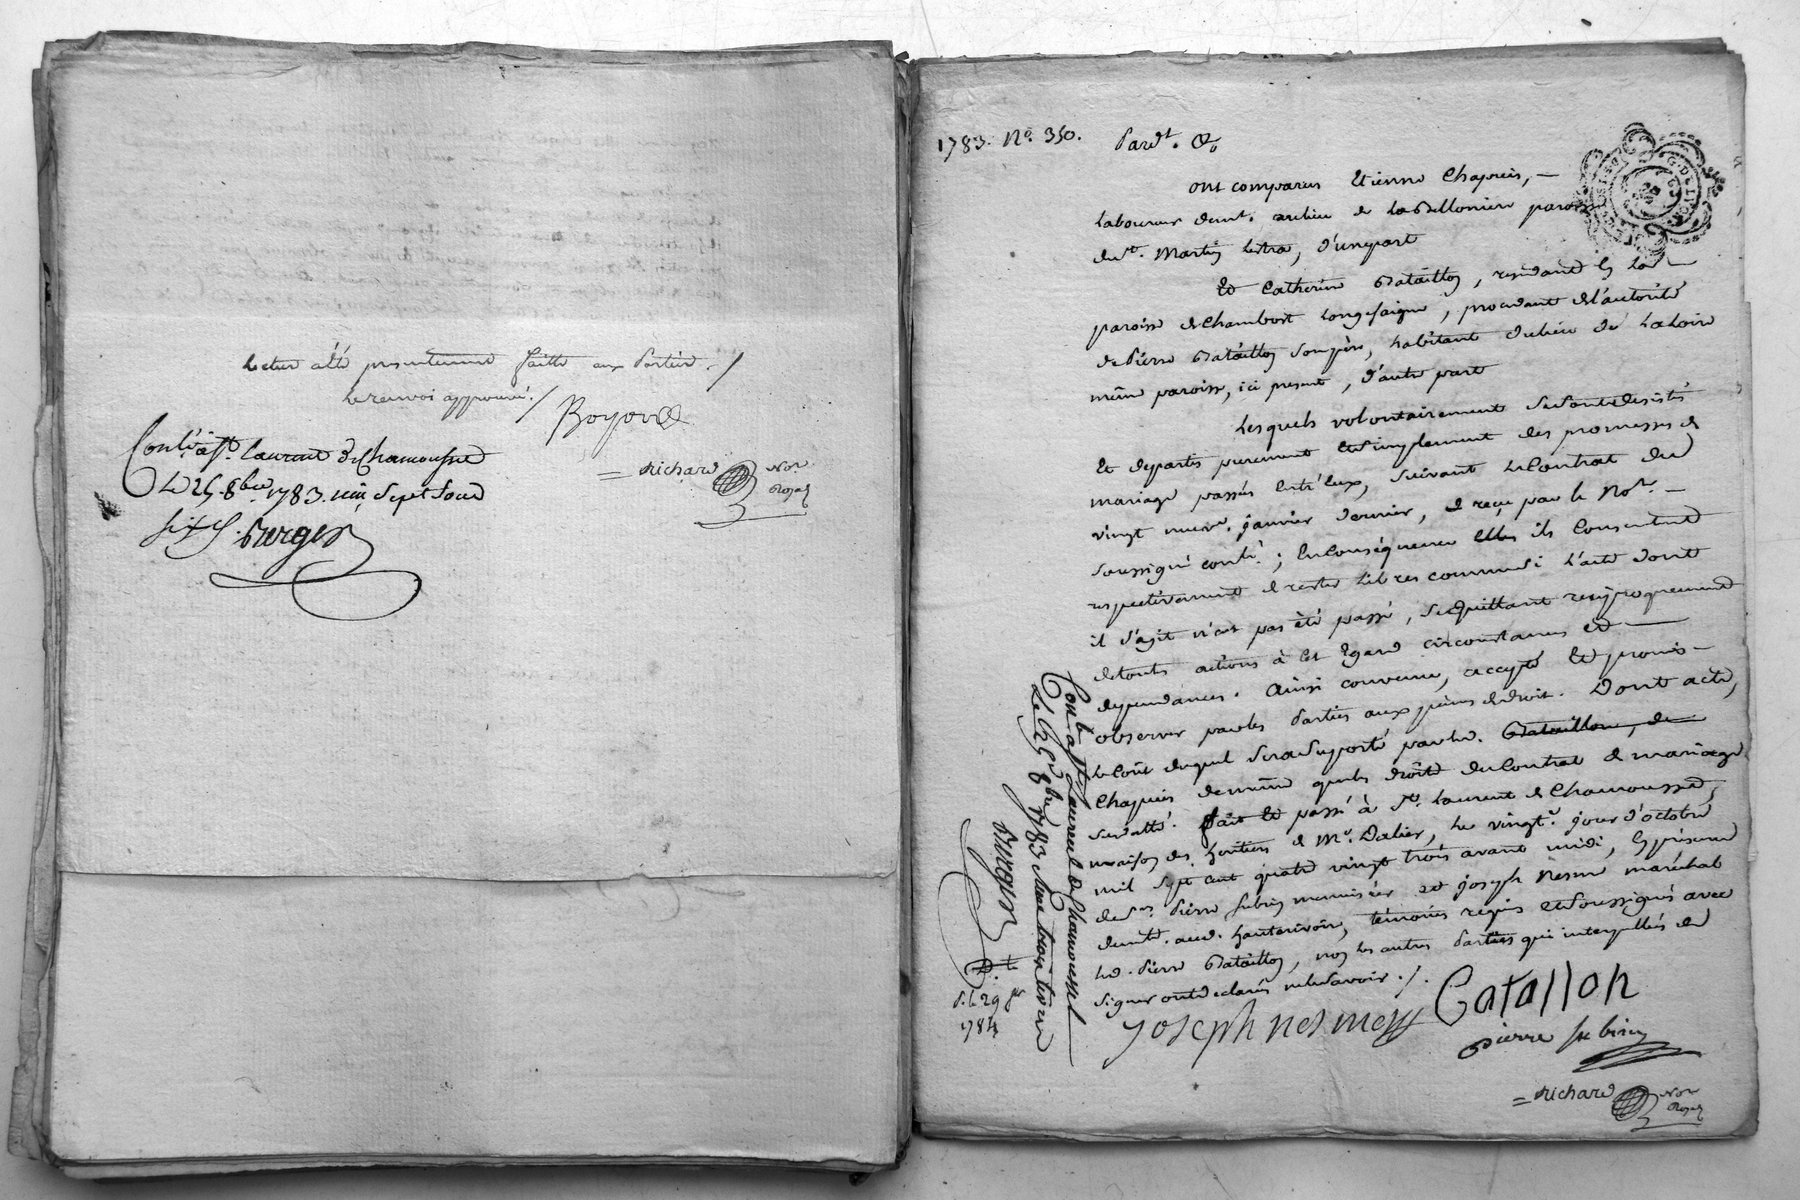 lecture a été presentement faitte aux Parties ./
le renvoi approuvé ./
Boyoud
Conlé à St. Laurent de Chamousset
Le 25. 8bre 1783. reçu Sept Sous
six d. Burgos
= Richard Nore
Royal
1783. No. 350.
Pardt. &
ont comparus Etienne Chapuis, —
laboureur demt. au lieu de la paroisse
de St. Martin Lestra, d'une part
Et Catherine Bataillon, residante en la —
paroisse de Chambost Longesaigne, procedante de l'autorité
de Pierre Bataillon son père, habitant du lieu de
même paroisse, ici present, d'autre part
Lesquels volontairement se sont desistés
et departis purement et simplement des promesses de
mariage passés entr'eux, suivant le Contrat du
vingt neuve. janvier dernier, et reçu par le Nore. —
soussigné conlé.; En conséquence ils consentent
respectivement de rester libres comme si l'acte dont
il s'agit n'eut pas été passé, se quittant reciproquement
de touts actions à cet égard circonstances et —
dependances. Ainsi convenu, accepté et promis —
observer par les Parties aux peines de droit. Dont acte,
le coût duquel sera suporté par led. Bataillon, de
Chapuis de même que les droits du Contrat de mariage
susdatté. fait et passé à St. Laurent de Chamousset,
maison des heritiers de Me. Dalier, le vingte. jour d'octobre
mil sept cent quatre vingt trois avant midi, En présence
de Srs. Pierre Subrin menuisier et Joseph Nesme maréchal
demts. aud. temoins requis et soussignés avec
led. Pierre Bataillon, non les autres Parties qui interpellés de
signer ont declarés ne le savoir ./.
Joseph nesme
Batallon
pierre subrin
= Richard Nore
Royal
Conlé à St Laurent de Chamousset
Le 25 8bre 1783
Burgos
d. le 29 jer
1784